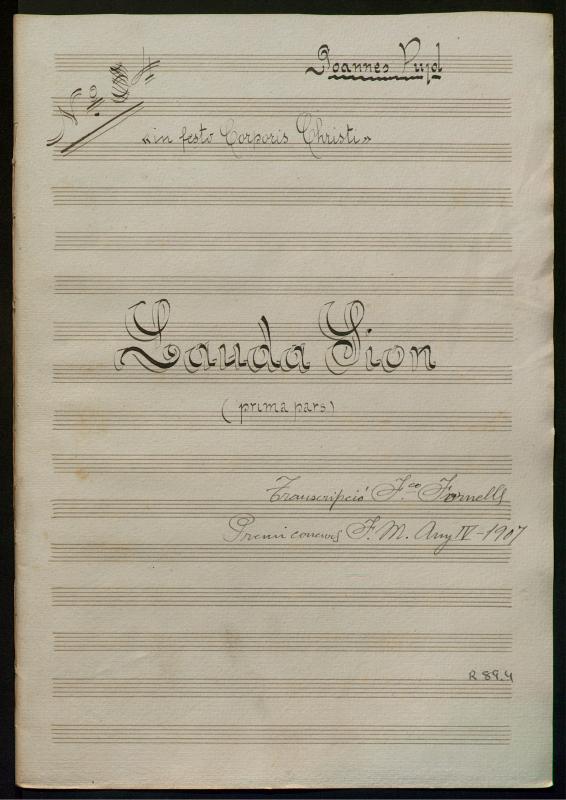 Joannes Pujol
Nº 34
«in festo Corporis Christi»
Lauda Sion
(prima pars)
Transcripció F.co Fornells
Premi concurs F. M. Any IV - 1907
R 89.4